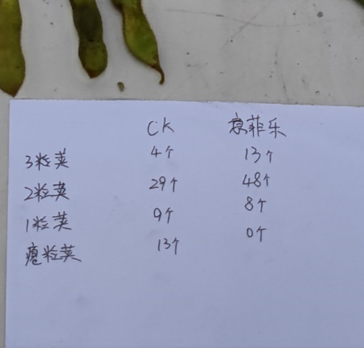 CK 意菲乐
3粒荚 4个 13个
2粒荚 29个 48个
1粒荚 9个 8个
瘪粒荚 13个 0个